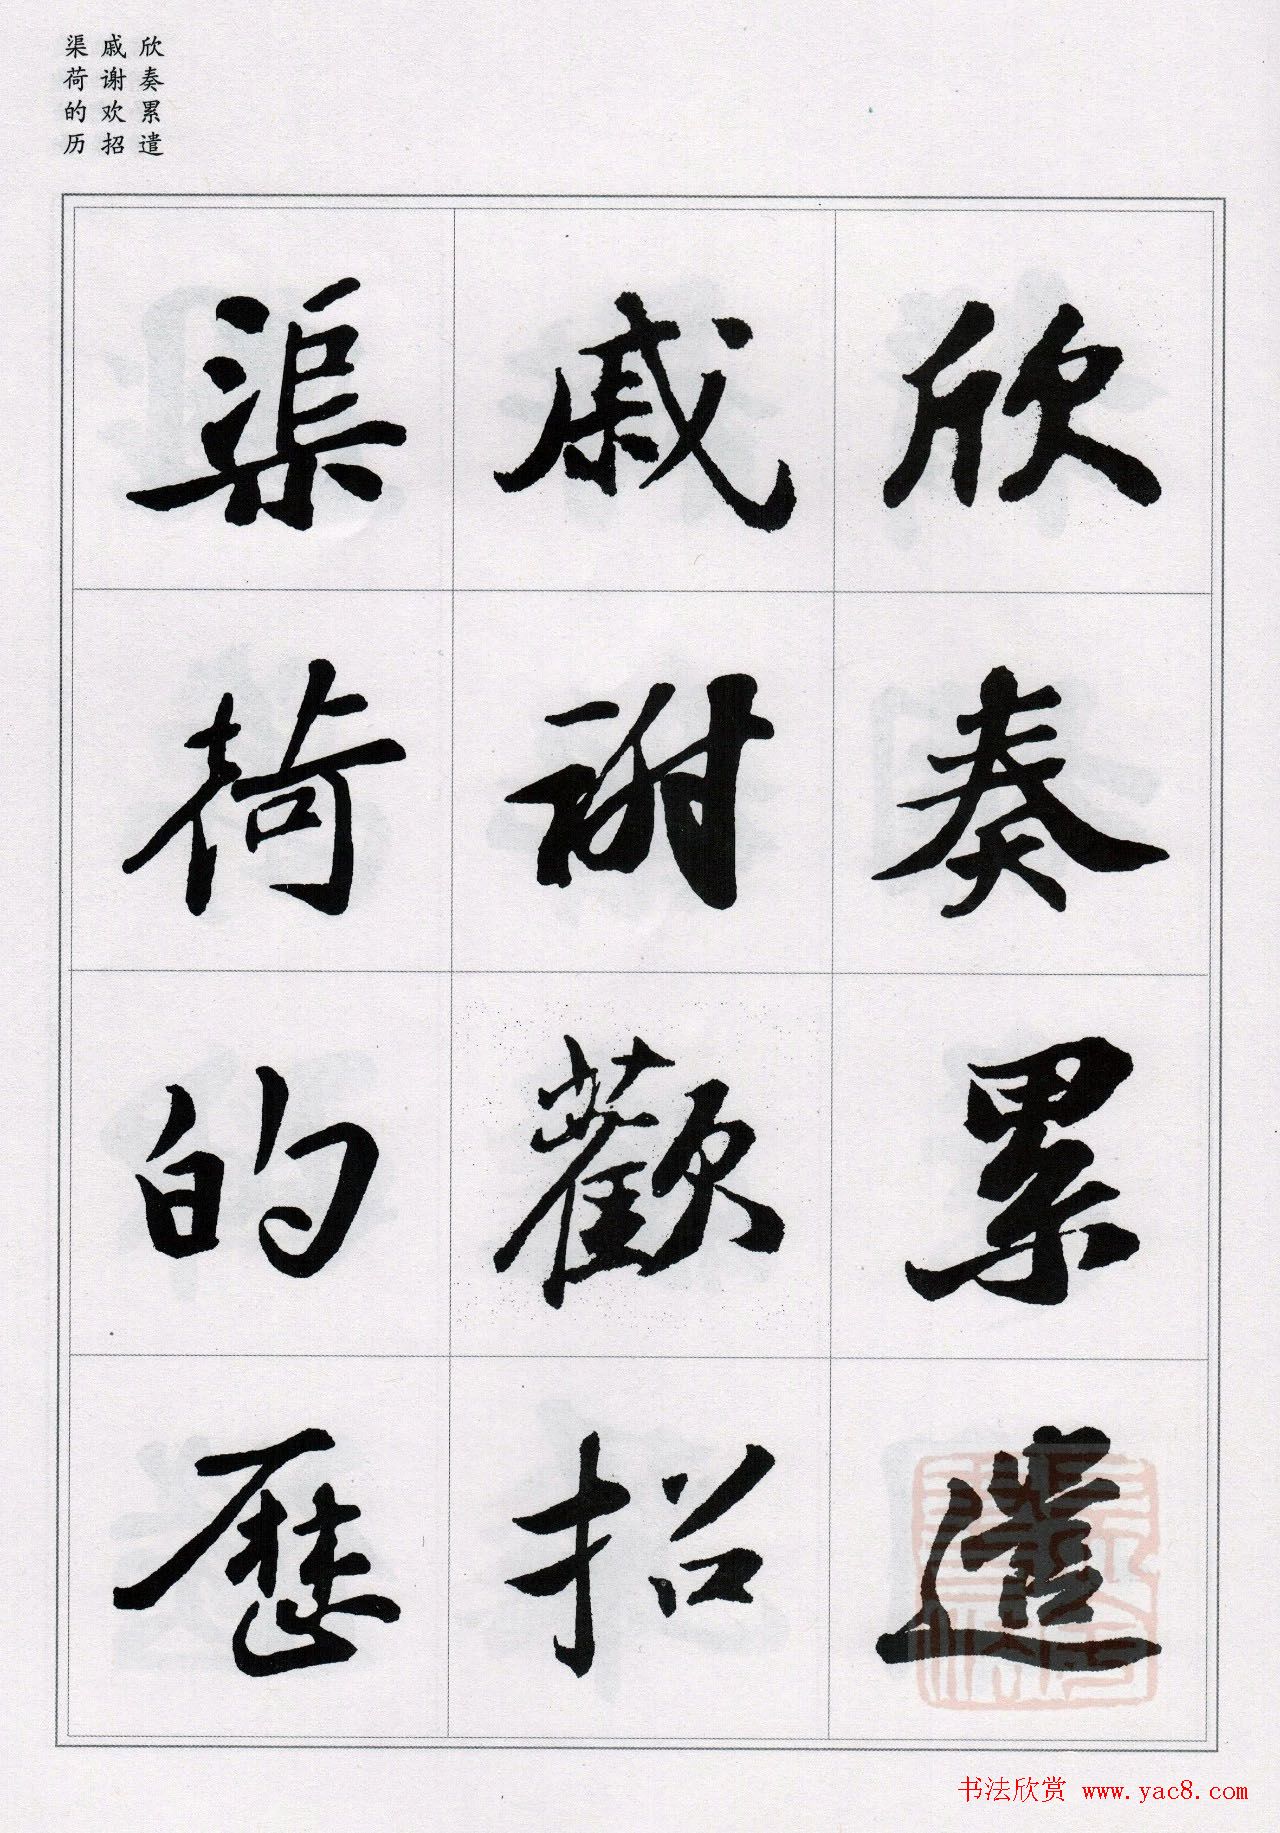 欣奏累遣
戚谢欢招
渠荷的历
欣奏累遣
戚謝歡招
渠荷的歷
书法欣赏 www.yac8.com